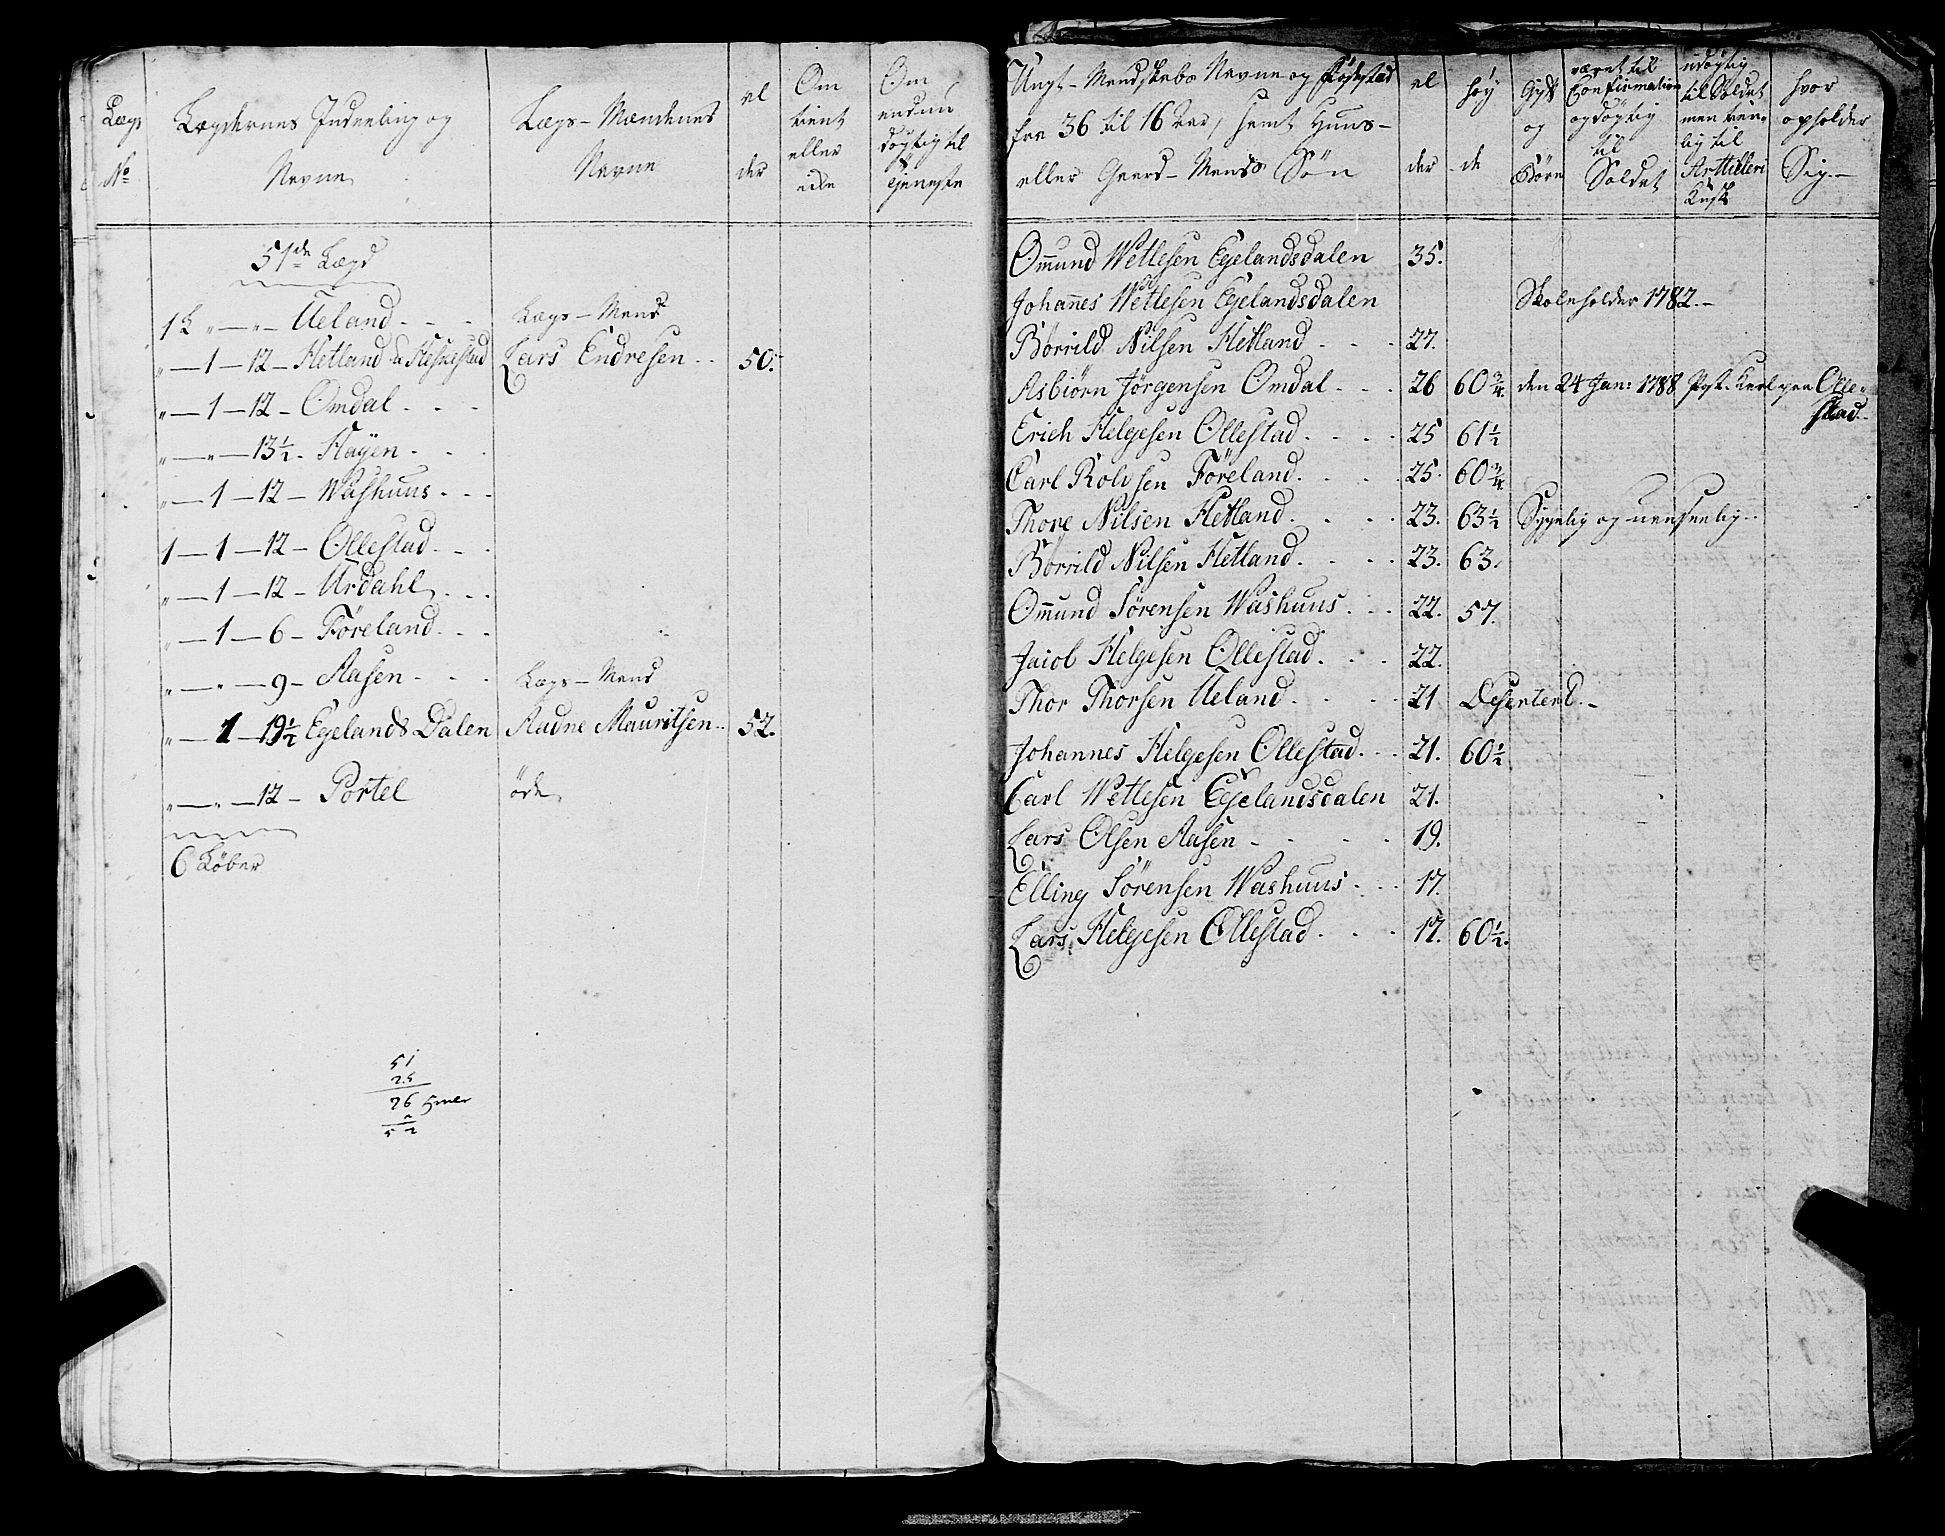 Lægs
No
Lægdernes Inddeeling og
Navne
Lægs-Mændenes
Navne
al
der
Om
tient
eller
ikke
Om
endnu
dygtig til
tjeneste
51de Lægd
1 L "—"— Ueland - - -
"—1—12— Hetland i Heskestad
"—1—12— Omdal - - -
"—"—13½- Hayen - - -
"—1—12— Washuus - - -
1—1—12— Ollestad - - -
"—1—12— Urdahl - - -
"—1—6— Föreland - - -
"—"—9— Aasen - - -
"—1—19½ Egelands Dalen
"—"—12— Portel
6 Löber
Lægs-Mand
Lars Endresen - - 50.
Lægs-Mand
Aadne Mauritsen - - 52.
öde
51
25
26 5mer
52
Ungt-Mandskabs Navne og Födested
fra 36 til 16 aar, samt Huus-
eller Gaard-Mands Sön
al
der
höy
de
Gift
og
Börn
været til
Confirmation
og dögtig
til
Soldat
udögtig
til Soldat
men
lig til
Artilleri
Kusk
hvor
opholder
Sig.—
Omund Wetlesen Egelandsdalen 35.
Johanes Wetlesen Egelandsdalen Skoleholder 1782.—
Börrild Nilsen Hetland - - - 27.
Asbiörn Jörgensen Omdal - - - 26 60¾. den 24 Jan: 1788 Post-Karl paa Olle-
stad.
Erich Helgesen Ollestad - - - 25 61½
Carl Rolvsen Föreland - - - 25. 60¾.
Thore Nilsen Hetland - - - 23. 63½ Sygelig og uanseelig -
Börrild Nilsen Hetland - - - 23. 63.
Omund Sörensen Washuus - - - 22. 57.
Jaiob Helgesen Ollestad - - - 22.
Thor Thorsen Ueland - - - 21 Desertert.-
Johannes Helgesen Ollestad - - - 21. 60½
Carl Wetlesen Egelandsdalen 21.
Lars Olsen Aasen - - - 19.
Elling Sörensen Washuus - - - 17.
Lars Helgesen Ollestad - - - 17. 60½.